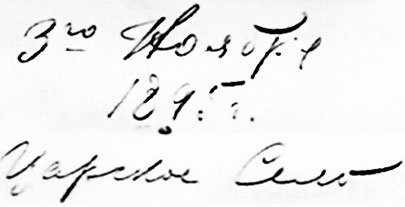 3го Ноября
1895г.
Царское Село